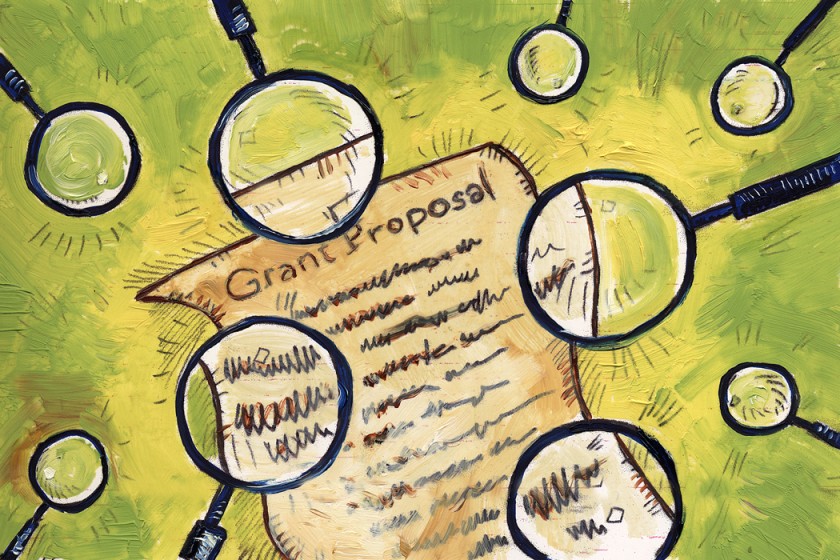 Grant Proposal